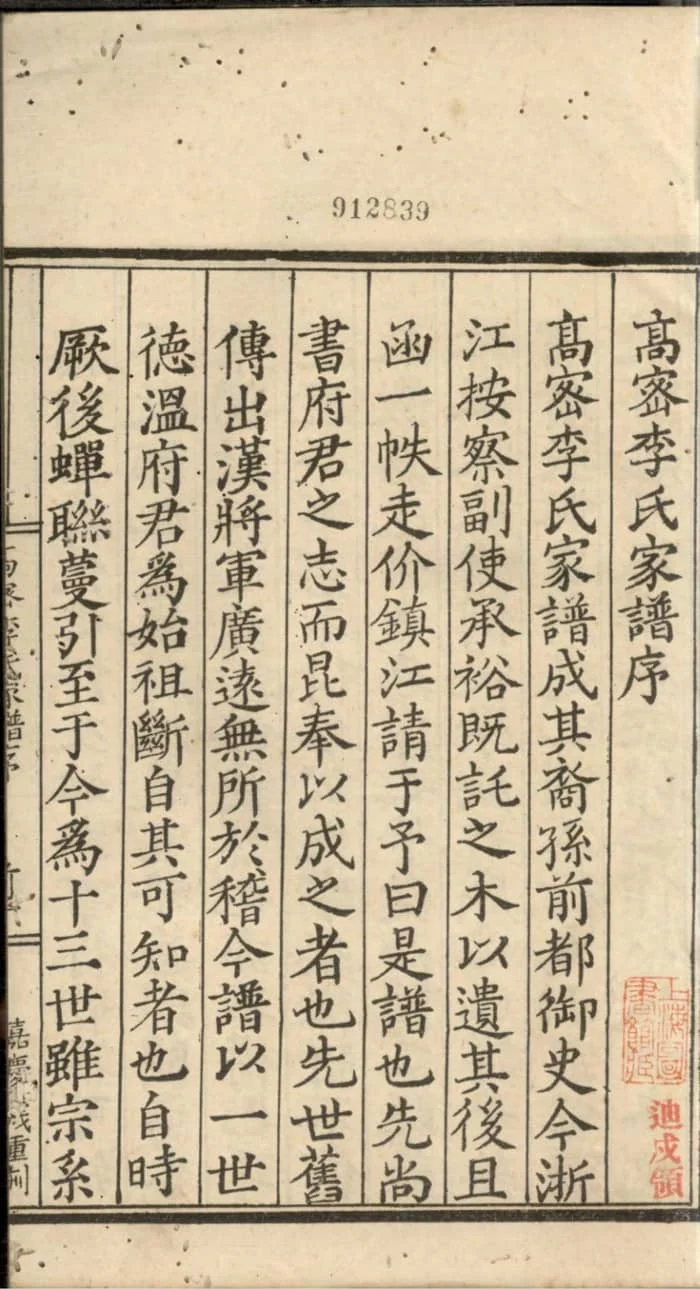 912839
高密李氏家譜序
高密李氏家譜成其裔孫前都御史今浙
江按察副使承裕既託之木以遺其後且
函一帙走价鎮江請于予曰是譜也先尚
書府君之志而昆奉以成之者也先世舊
傳出漢將軍廣遠無所於稽今譜以一世
德溫府君爲始祖斷自其可知者也自時
厥後蟬聯蔓引至于今爲十三世雖宗系
上海圖
書館藏
迪戍領
高密李氏家譜序
嘉慶戊重刊